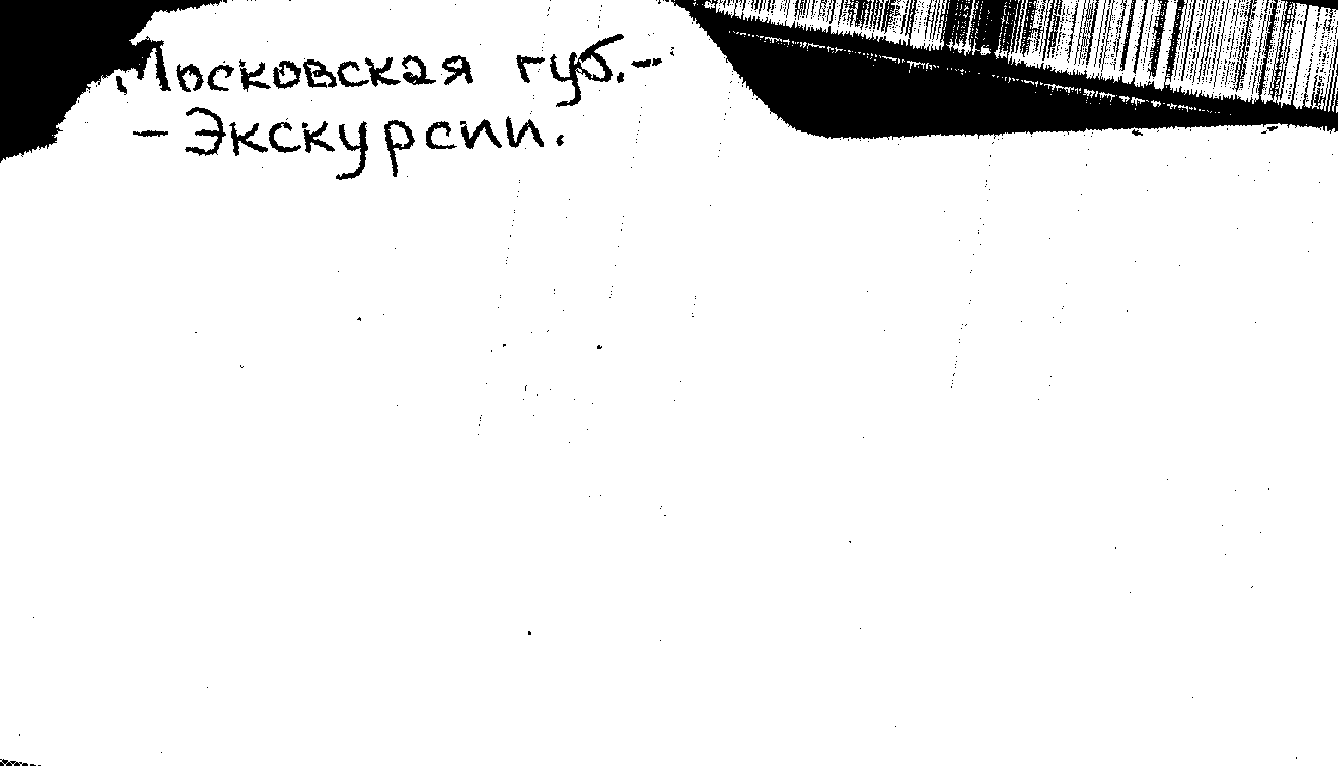 Московская губ.-
- Экскурсии.